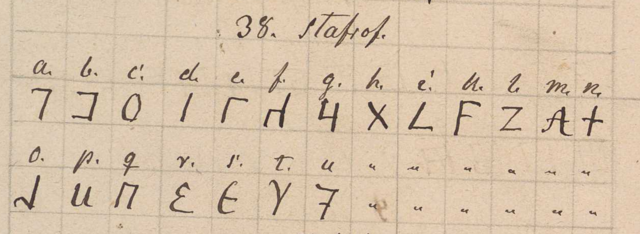 38. Stafrof.
a. b. c. d. e. f. g. h. i. k. l. m. n.
O I Γ Ч X L F Z A +
o. p. q r. s. t. u „ „ „ „ „ „
u П Ɛ Є Y 7 „ „ „ „ „ „